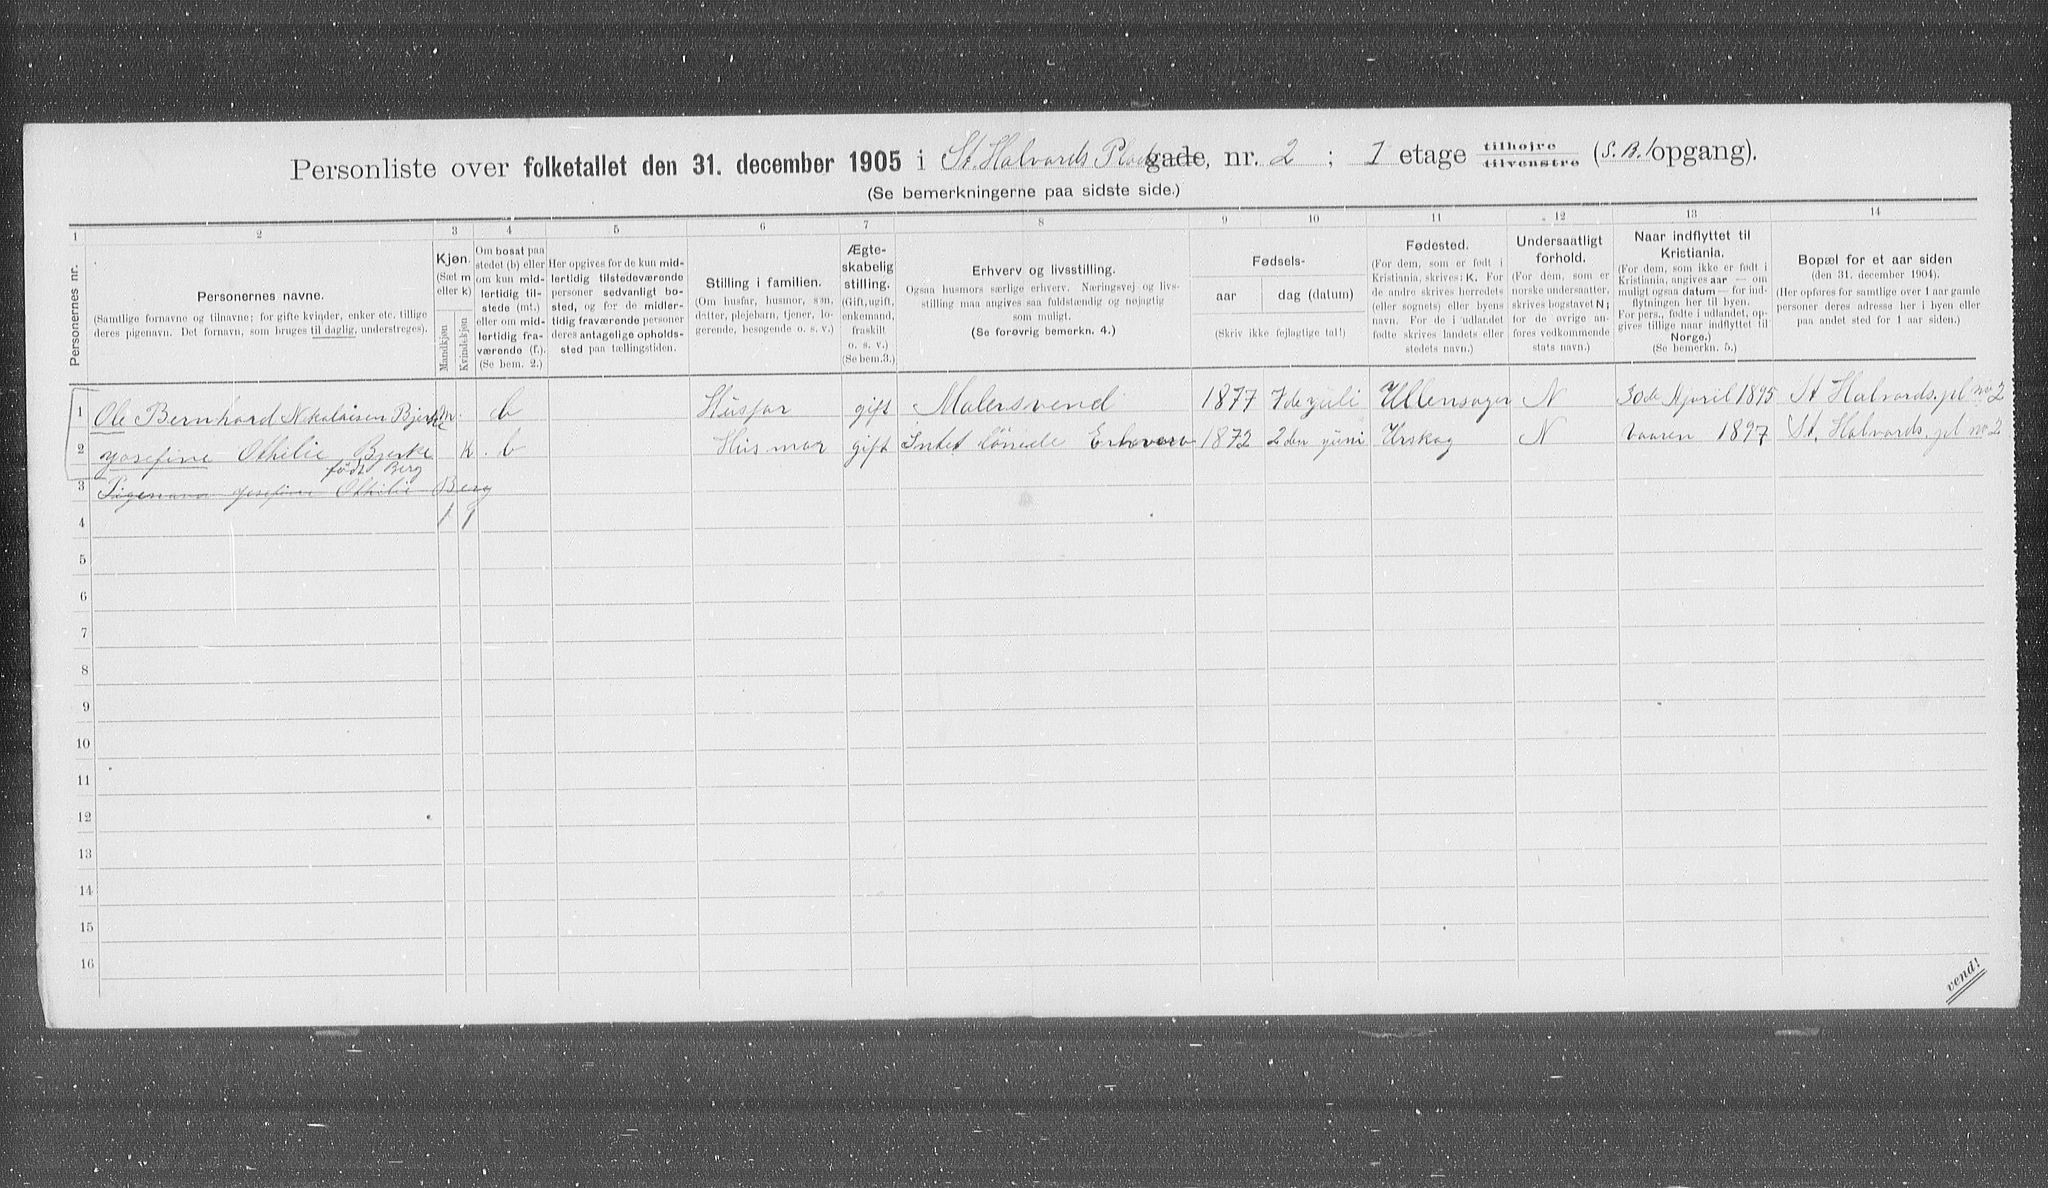 Personliste over folketallet den 31. december 1905 i St. Halvards Plads gade, nr. 2 ; 1 etage tilhøjre tilvenstre (S. B. opgang).
(Se bemerkningerne paa sidste side.)
1 2 3 4 5 6 7 8 9 10 11 12 13 14
Personernes nr.
Personernes navne.
(Samtlige fornavne og tilnavne; for gifte kvinder, enker etc. tillige
deres pigenavn. Det fornavn, som bruges til daglig, understreges).
Kjøn.
(Sæt m
eller k)
Mandkjøn
Kvindekjøn
Om bosat paa
stedet (b) eller
om kun mid-
lertidig til-
stede (mt.)
eller om mid-
lertidig fra-
værende (f.).
(Se bem. 2.)
Her opgives for de kun mid-
lertidig tilstedeværende
personer sedvanligt bo-
sted, og for de midler-
tidig fraværende personer
deres antagelige opholds-
sted paa tællingstiden.
Stilling i familien.
(Om husfar, husmor, søn,
datter, plejebarn, tjener, lo-
gerende, besøgende o. s. v.)
Ægte-
skabelig
stilling.
(Gift, ugift,
enkemand,
fraskilt
o. s. v.)
(Se bem.3.)
Erhverv og livsstilling.
Ogsaa husmors særlige erhverv. Næringsvej og livs-
stilling maa angives saa fuldstændig og nøjagtig
som muligt.
(Se forøvrig bemerkn. 4.)
Fødsels-
aar
dag (datum)
(Skriv ikke fejlagtige tal!)
Fødested.
(For dem, som er født i
Kristiania, skrives: K. For
de andre skrives herredets
(eller sognets) eller byens
navn. For de i udlandet
fødte skrives landets eller
stedets navn.)
Undersaatligt
forhold.
(For dem, som er
norske undersaatter,
skrives bogstavet N;
for de øvrige an-
føres vedkommende
stats navn.)
Naar indflyttet til
Kristiania.
(For dem, som ikke er født i
Kristiania, angives aar — om
muligt ogsaa datum — for ind-
flytningen her til byen.
For pers., fødte i udlandet, op-
gives tillige naar indflyttet til
Norge.)
(Se bemerkn. 5.)
Bopæl for et aar siden
(den 31. december 1904).
(Her opføres for samtlige over 1 aar gamle
personer deres adresse her i byen eller
paa andet sted for 1 aar siden.)
1 Ole Bernhard Nikolaisen Bjerke m. b Husfar gift Malersvend 1877 7de juli Ullensager N 30de April 1895 St Halvards. pl no 2
2 Josefine Othilie Bjerke k. b Husmor gift Intet lønede Erhverv 1872 2den juni Urskog N vaaren 1897 St. Halvards. pl no 2
født Berg
3 Pigenavn Josefine Othilie Berg
4 1 1
5
6
7
8
9
10
11
12
13
14
15
16
vend!